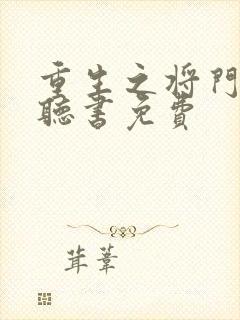 重生之将门
聽書免費
茸葦